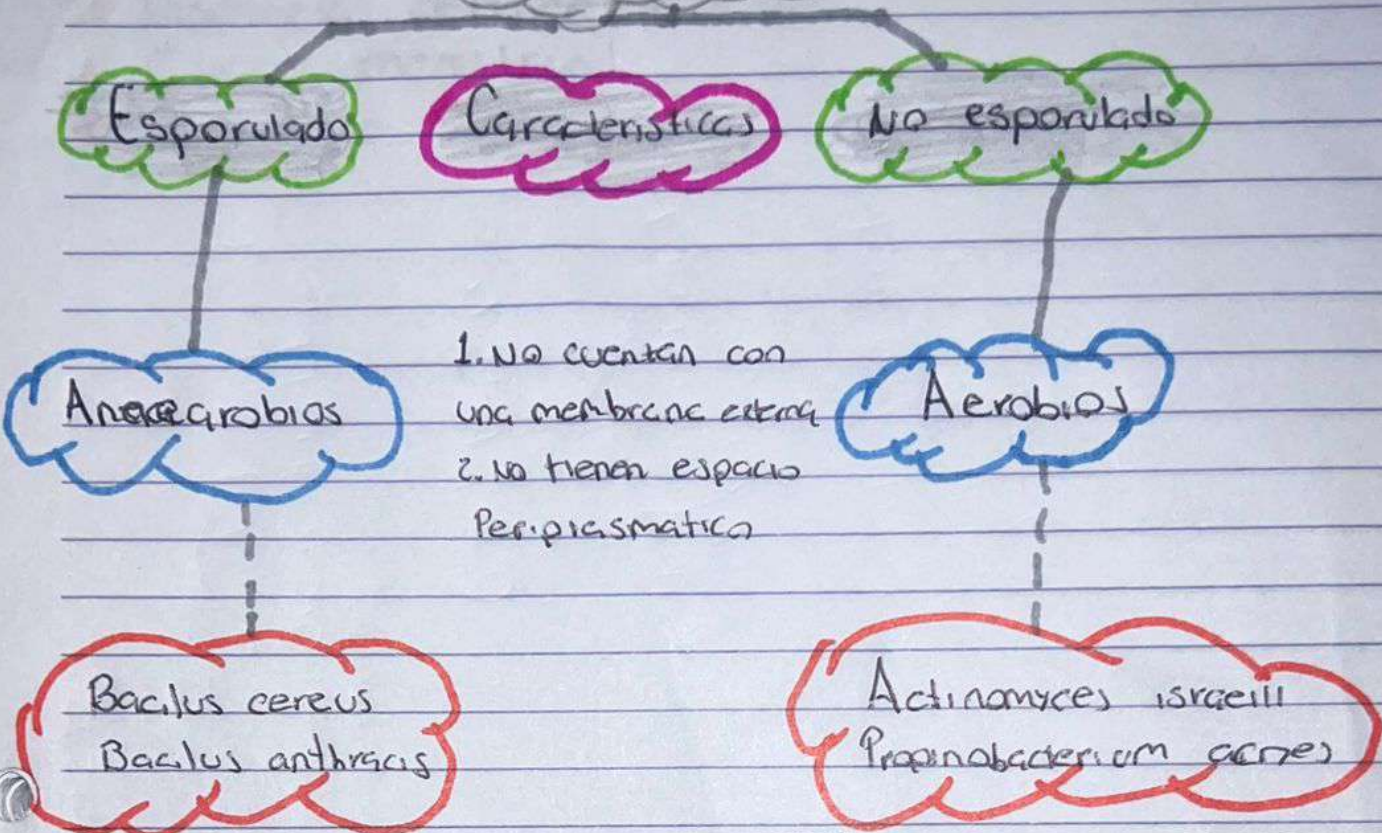 Esporulado
Caracteristicas
No esporulado
Anaearobios
1. No cuentan con
una membrana externa
2. No tienen espacio
Periplasmatico
Aerobios
Bacilus cereus
Bacilus anthracis
Actinomyces israeili
Propinobacterium acnes